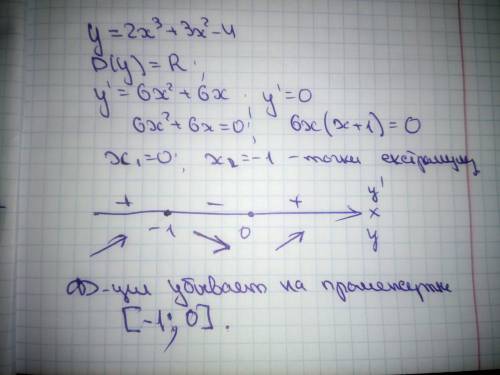 y = 2x³ + 3x² - 4
D(y) = R;
y' = 6x² + 6x; y' = 0
6x² + 6x = 0; 6x(x+1) = 0
x₁ = 0; x₂ = -1 - точки екстремуму
+ - + y'
-1 0 x
y
Ф-ция убывает на промежутке
[-1; 0].